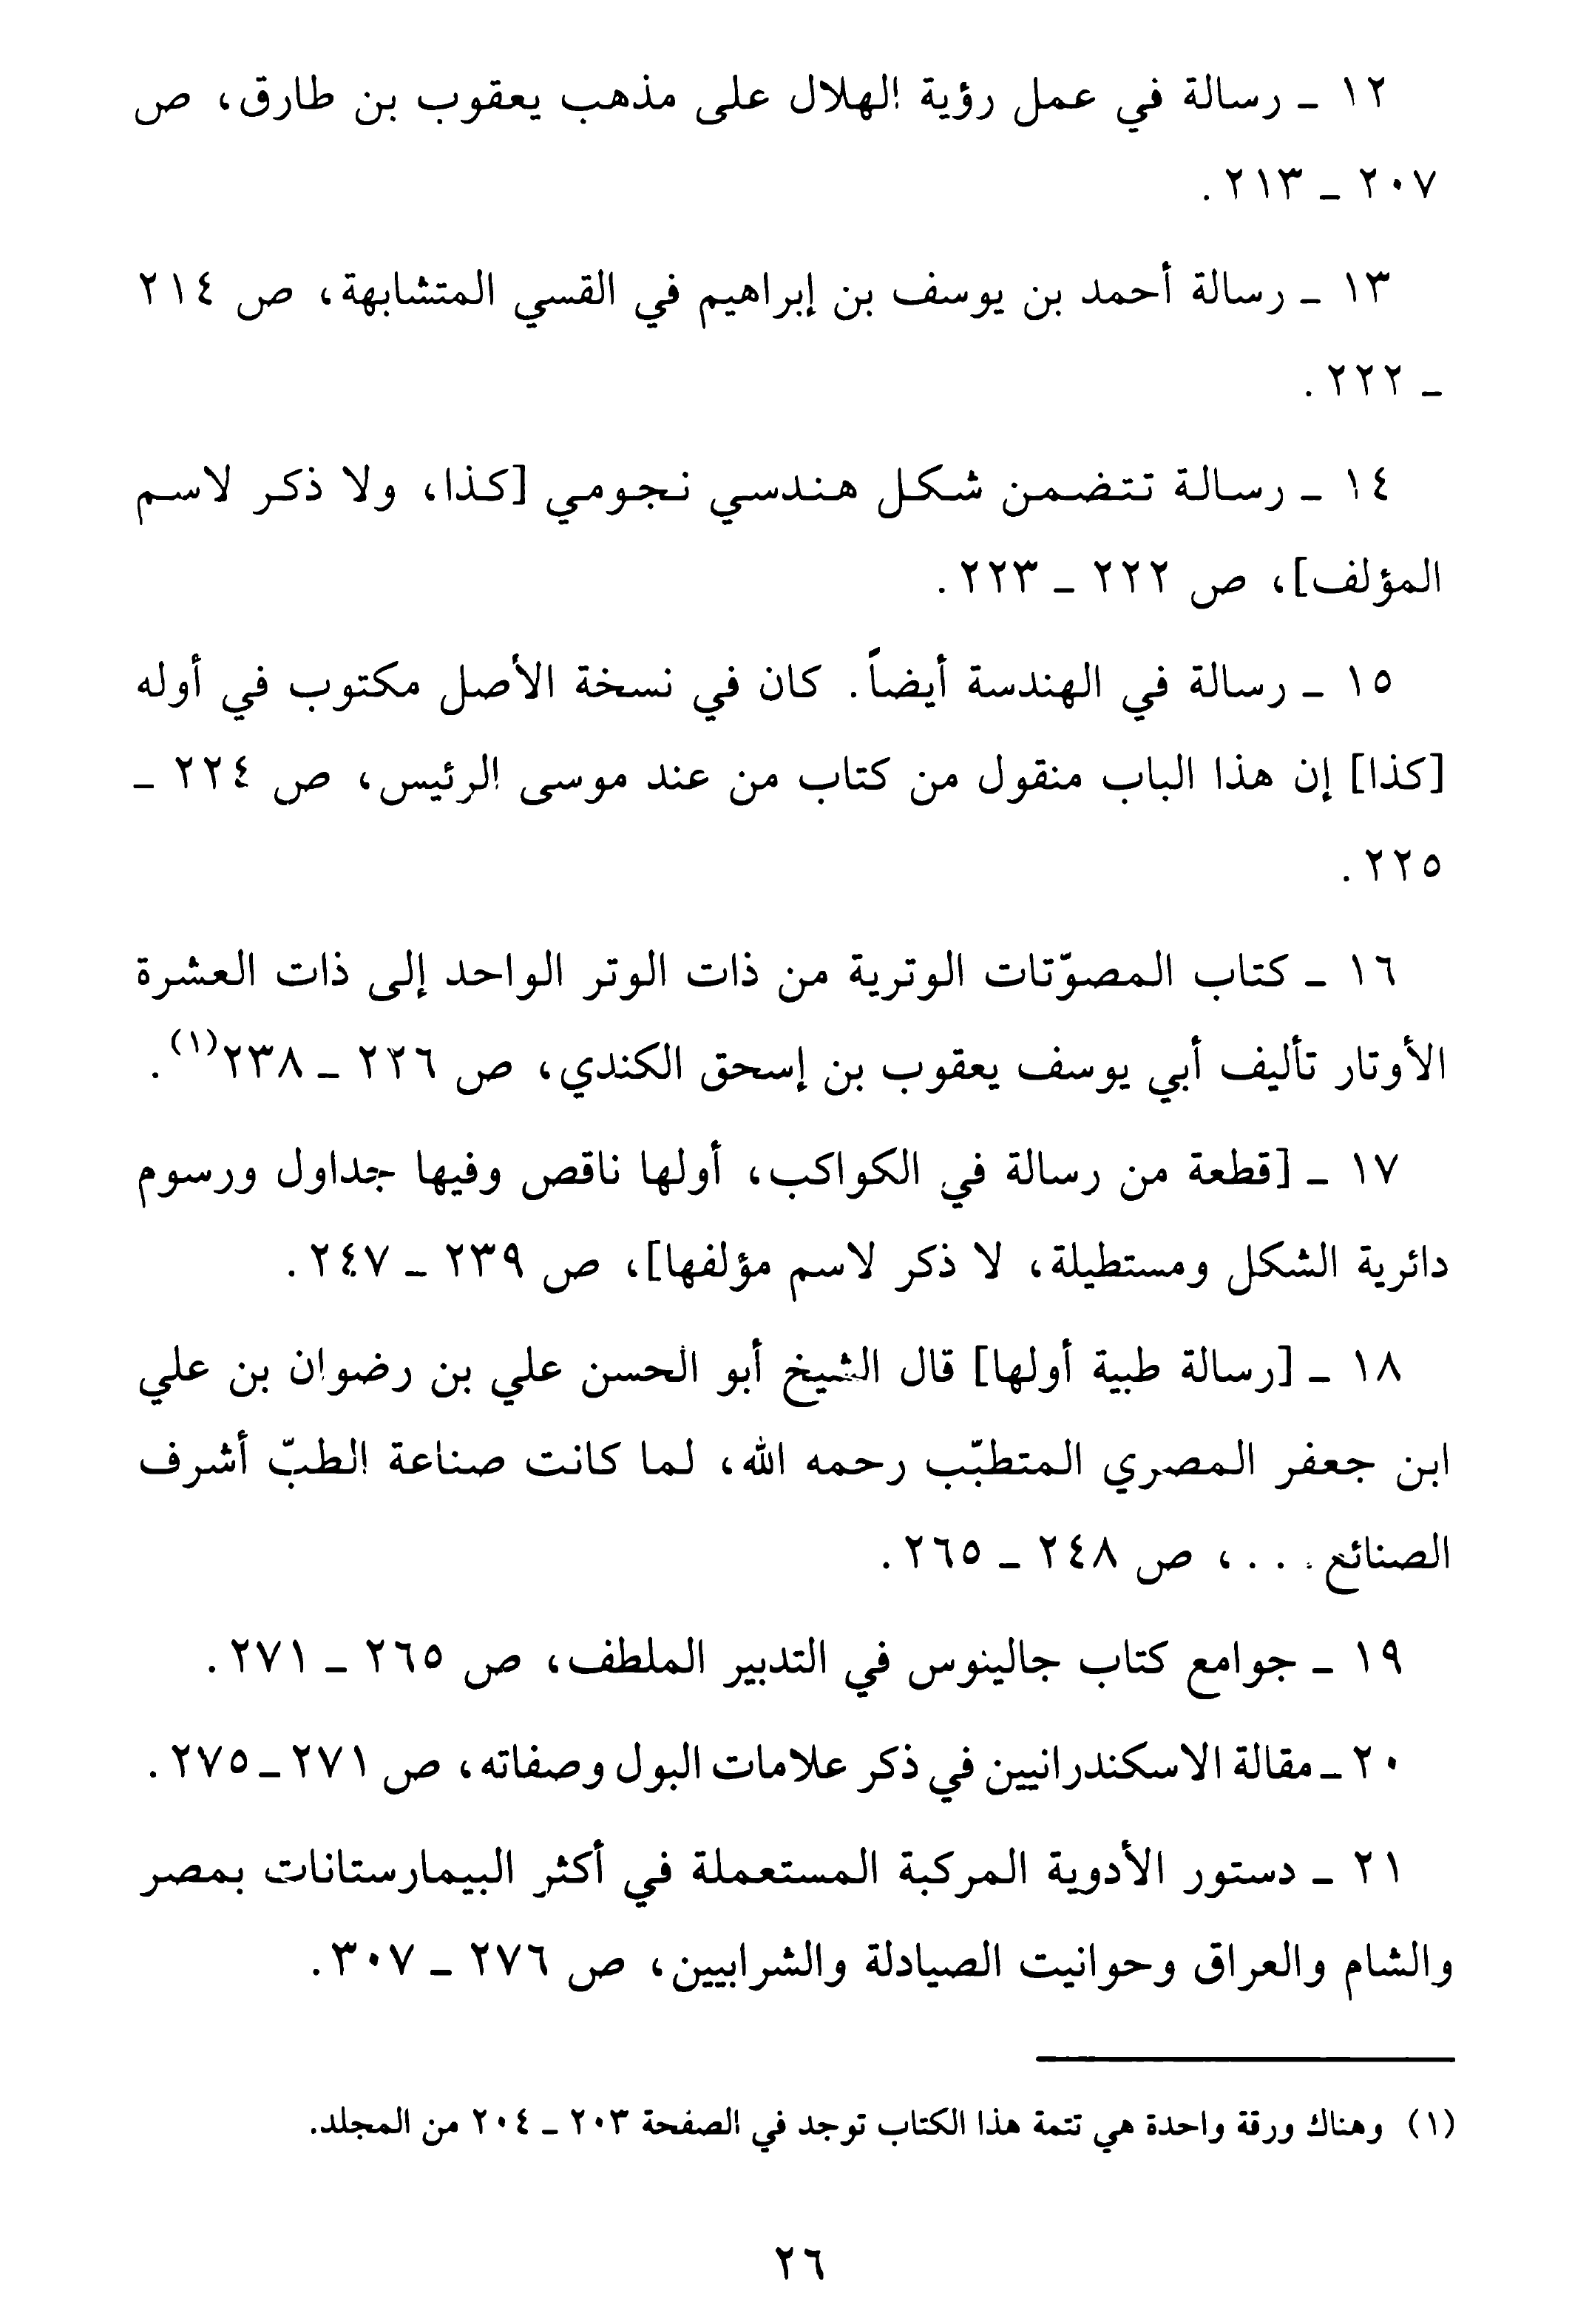 ١٢ - رسالة في عمل رؤية الهلال على مذهب يعقوب بن طارق، ص
٢٠٧ - ٢١٣.
١٣ - رسالة أحمد بن يوسف بن إبراهيم في القسي المتشابهة، ص ٢١٤
- ٢٢٢.
١٤ - رسالة تتضمن شكل هندسي نجومي [كذا، ولا ذكر لاسم
المؤلف]، ص ٢٢٢ - ٢٢٣.
١٥ - رسالة في الهندسة أيضاً. كان في نسخة الأصل مكتوب في أوله
[كذا] إن هذا الباب منقول من كتاب من عند موسى الرئيس، ص ٢٢٤ -
٢٢٥.
١٦ - كتاب المصوّتات الوترية من ذات الوتر الواحد إلى ذات العشرة
الأوتار تأليف أبي يوسف يعقوب بن إسحق الكندي، ص ٢٢٦ - ٢٣٨(١).
١٧ - [قطعة من رسالة في الكواكب، أولها ناقص وفيها جداول ورسوم
دائرية الشكل ومستطيلة، لا ذكر لاسم مؤلفها]، ص ٢٣٩ - ٢٤٧.
١٨ - [رسالة طبية أولها] قال الشيخ أبو الحسن علي بن رضوان بن علي
ابن جعفر المصري المتطبّب رحمه الله، لما كانت صناعة الطبّ أشرف
الصنائع...، ص ٢٤٨ - ٢٦٥.
١٩ - جوامع كتاب جالينوس في التدبير الملطف، ص ٢٦٥ - ٢٧١.
٢٠ - مقالة الاسكندرانيين في ذكر علامات البول وصفاته، ص ٢٧١ - ٢٧٥.
٢١ - دستور الأدوية المركبة المستعملة في أكثر البيمارستانات بمصر
والشام والعراق وحوانيت الصيادلة والشرابيين، ص ٢٧٦ - ٣٠٧.
(١) وهناك ورقة واحدة هي تتمة هذا الكتاب توجد في الصفحة ٢٠٣ - ٢٠٤ من المجلد.
٢٦